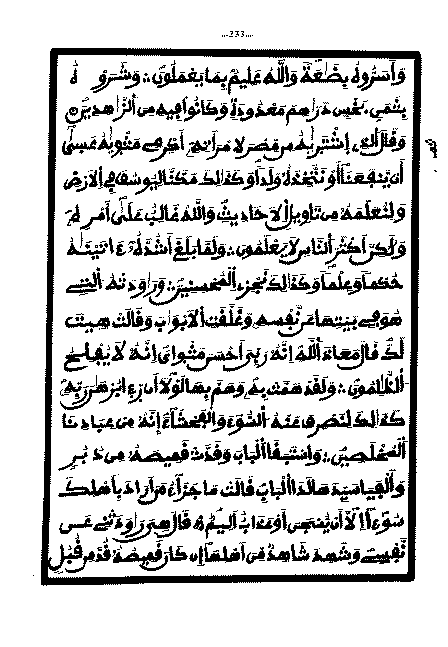 ...233...
وأسروه بضعة والله عليم بما يعملون وشروه
بثمن بخس دراهم معدودة وكانوا فيه من الزاهدين
وقال الذي اشتريه من مصر لامرأته أكرمي مثويه عسى
أن ينفعنا أو نتخذه ولدا وكذلك مكنا ليوسف في الأرض
ولنعلمه من تأويل الأحاديث والله غالب على أمره
ولكن أكثر الناس لا يعلمون ولما بلغ أشده ءاتينه
حكما وعلما وكذلك نجزي المحسنين وراودته التي
هو في بيتها عن نفسه وغلقت الأبواب وقالت هيت
لك قال معاذ الله إنه ربي أحسن مثواي إنه لا يفلح
الظالمون ولقد همت به وهم بها لولا أن رءا برهن ربه
كذلك لنصرف عنه السوء والفحشاء إنه من عبادنا
المخلصين واستبقا الباب وقدت قميصه من دبر
وألفيا سيدها لدا الباب قالت ما جزاء من أراد بأهلك
سوءا إلا أن يسجن أو عذاب أليم قال هي راودتني عن
نفسي وشهد شاهد من أهلها إن كان قميصه قد من قبل